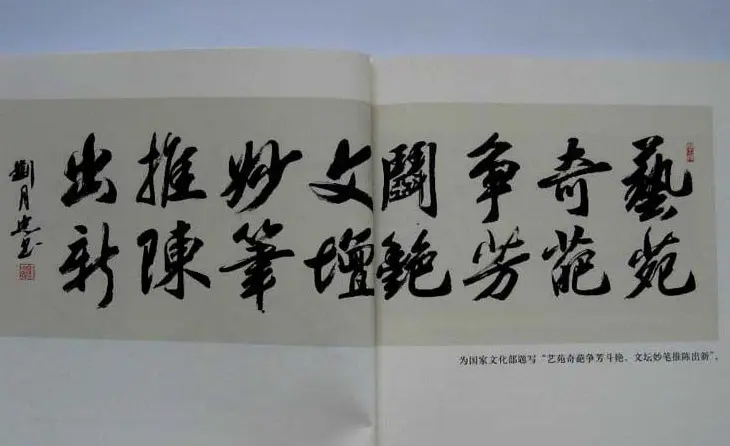 藝苑
奇葩
争芳
鬭艷
文壇
妙筆
推陳
出新
劉月
为国家文化部题写“艺苑奇葩争芳斗艳、文坛妙笔推陈出新”。